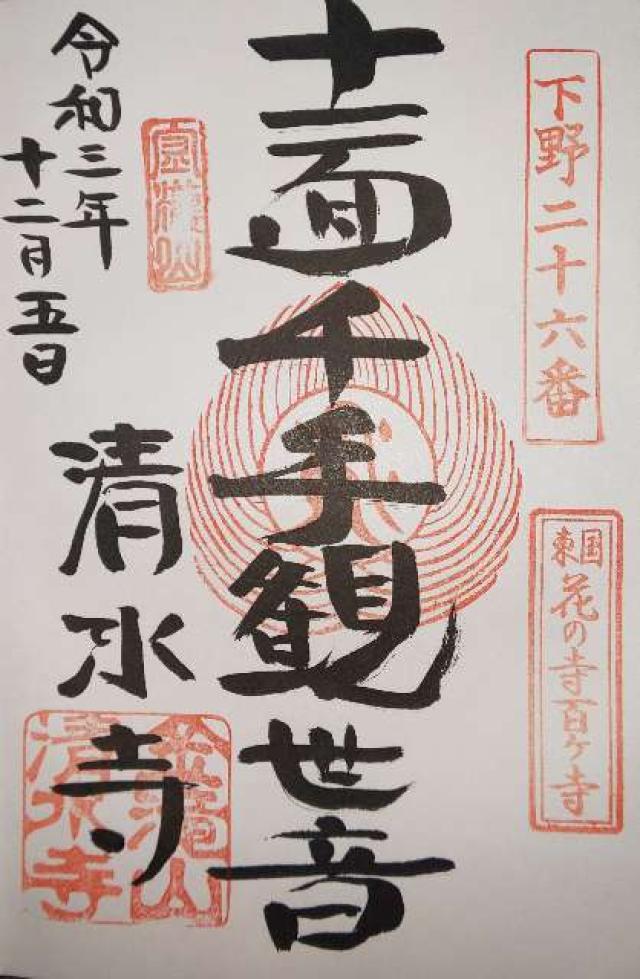 下野二十六番
東国
花の寺百ヶ寺
十一面千手観世音
清水寺
令和三年
十二月五日
金滝山
清水寺